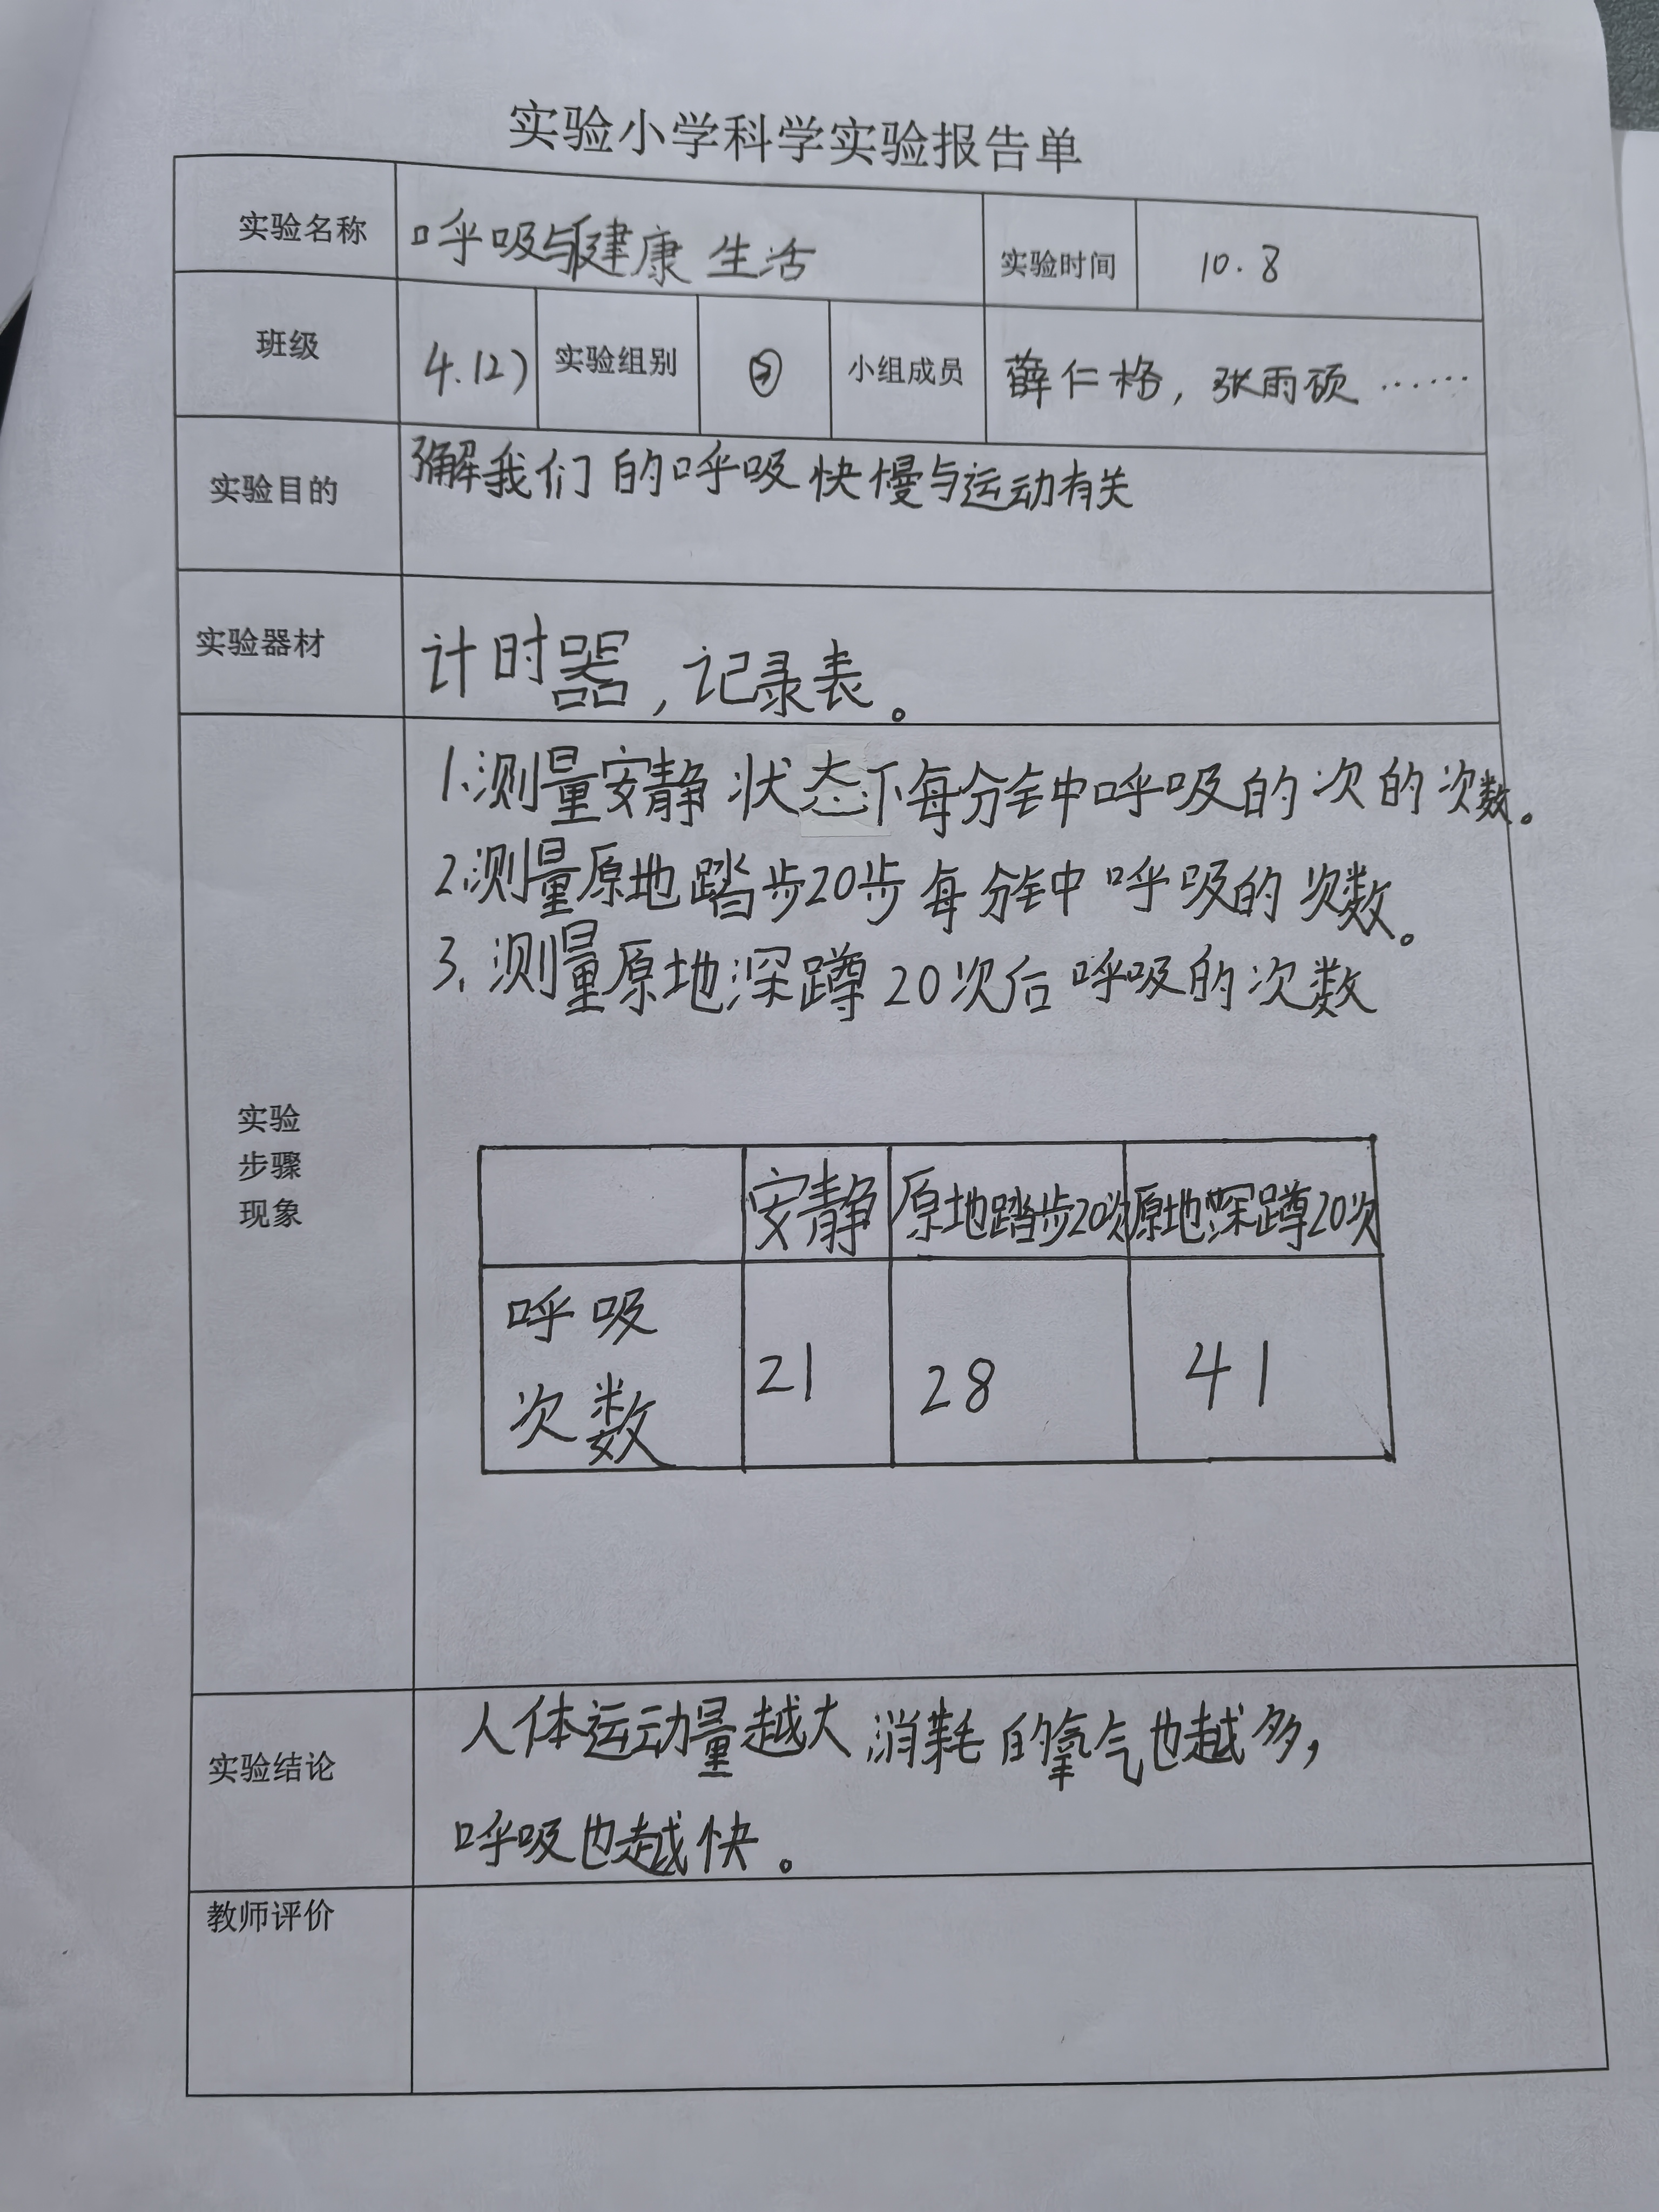 实验小学科学实验报告单
实验名称 呼吸与健康生活 实验时间 10.8
班级 4.(2) 实验组别 小组成员 薛仁格，张雨硕……
实验目的 了解我们的呼吸快慢与运动有关
实验器材 计时器，记录表。
1.测量安静状态下每分钟中呼吸的次的次数。
2.测量原地踏步20步每分钟中呼吸的次数。
3.测量原地深蹲20次后呼吸的次数
实验
步骤
现象
安静 原地踏步20次 原地深蹲20次
呼吸
次数 21 28 41
实验结论 人体运动量越大消耗的氧气也越多，
呼吸也越快。
教师评价